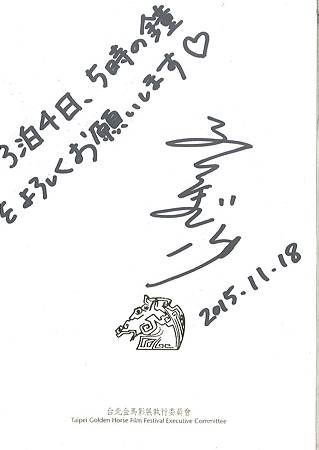 3泊4日、5時の鐘
をよろしくお願いします♡
2015.11.18
台北金馬影展執行委員會
Taipei Golden Horse Film Festival Executive Committee